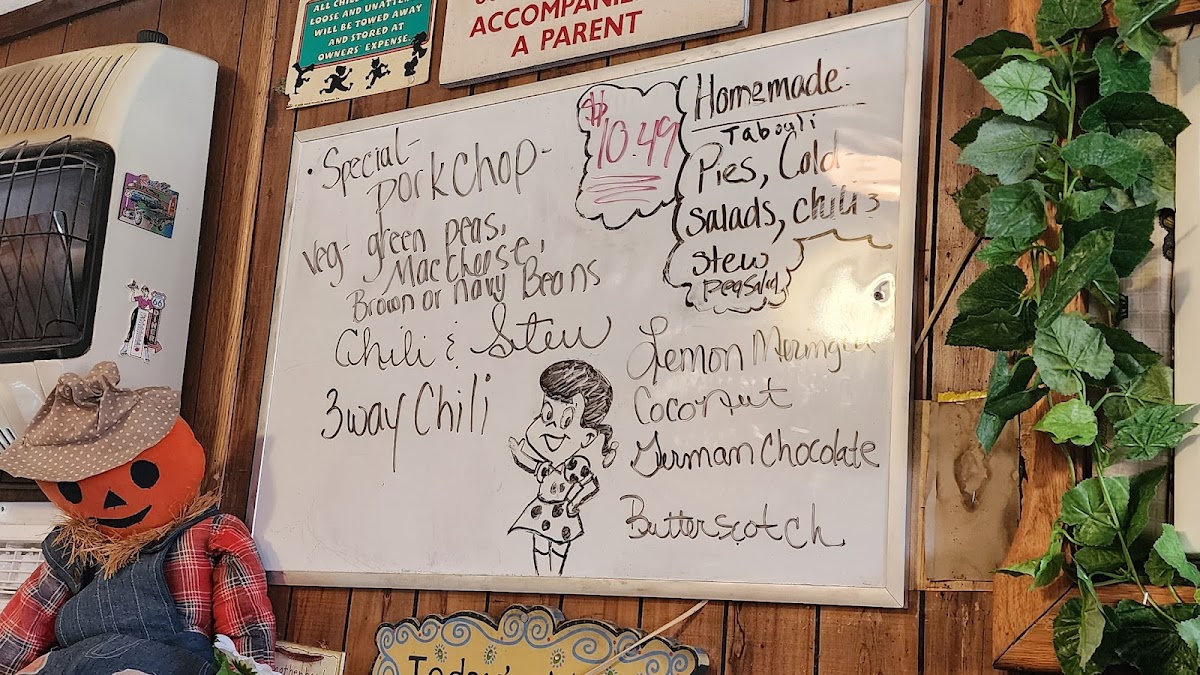 ALL CHIL
LOOSE AND UNATTE
WILL BE TOWED AWAY
AND STORED AT
OWNERS' EXPENSE
ACCOMPANIE
A PARENT
• Special-
Pork Chop-
Veg- green peas,
Mac Cheese,
Brown or Navy Beans
Chili & Stew
3way Chili
$10.49
Homemade:
Tabouli
Pies, Cold
Salads, chili &
Stew
Lemon Meringue
Coconut
German Chocolate
Butterscotch
66
Today's